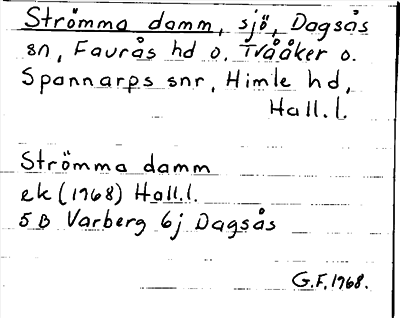 Strömma damm, sjö, Dagsås
sn, Faurås hd o. Tvååker o.
Spannarps snr, Himle hd,
Hall.l.
Strömma damm
ek (1968) Hall.l.
5B Varberg 6j Dagsås
G.F. 1968.